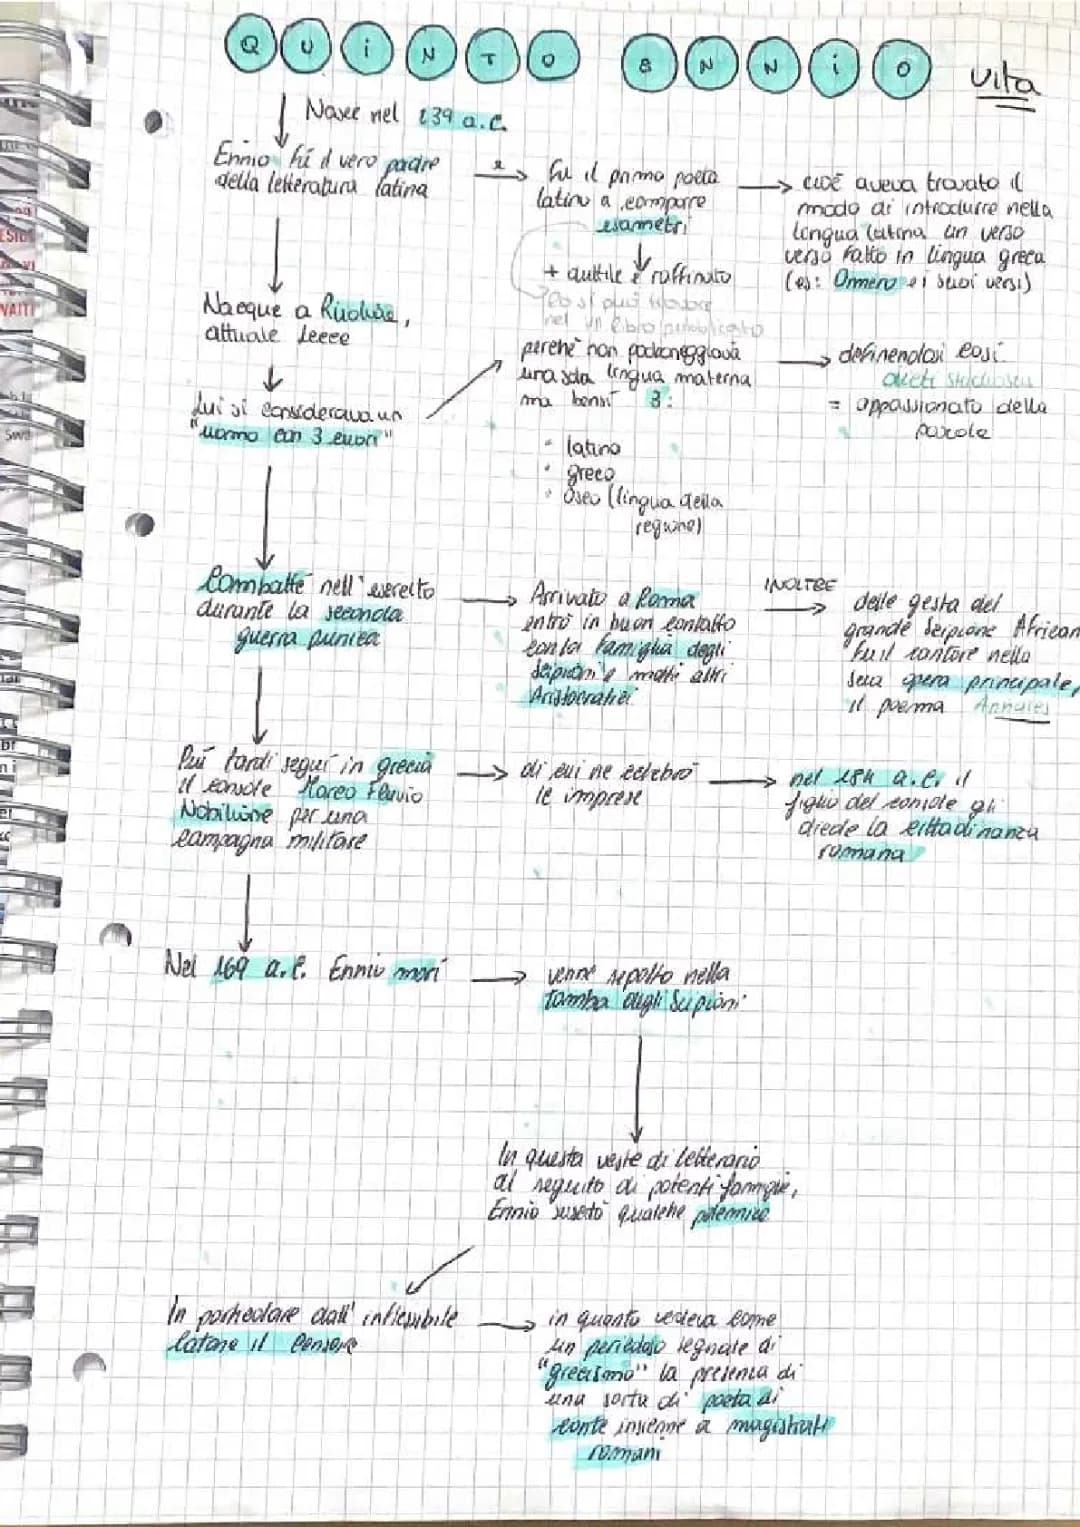 QUINTO ENNIO vita
Nasce nel 239 a.C.
Ennio fù il vero padre
della letteratura latina
e
fu il primo poeta
latino a comporre
esametri
cioè aveva trovato il
modo di introdurre nella
lingua latina un verso
verso fatto in lingua greca
(es: Ommero e i suoi versi)
+ duttile e raffinato
Nacque a Rudiae,
attuale Lecce
perché non padroneggiava
una sola lingua materna
ma bensì 3:
definendosi così
= appassionato della
parola
Lui si considerava un
"uomo con 3 cuori"
• latino
• greco
• Osco (lingua della
regione)
Combatté nell'esercito
durante la seconda
guerra punica
Arrivato a Roma
entrò in buon contatto
con la famiglia degli
Scipioni e molti altri
Aristocratici
INOLTRE
delle gesta del
grande Scipione African
fu il cantore nella
sua opera principale,
il poema Annales
Più tardi seguì in grecia
il console Marco Fluvio
Nobiliore per una
campagna militare
di cui ne celebrò
le imprese
nel 184 a.C. il
figlio del console gli
diede la cittadinanza
romana
Nel 169 a.C. Ennio morì
venne sepolto nella
tomba degli Scipioni
In questa veste di letterario
al seguito di potenti famiglie,
Ennio suscitò qualche polemica
In particolare dall'inflessibile
Catone il Censore
in quanto vedeva come
un pericoloso segnale di
"grecismo" la presenza di
una sorta di poeta di
corte insieme a magistrati
romani